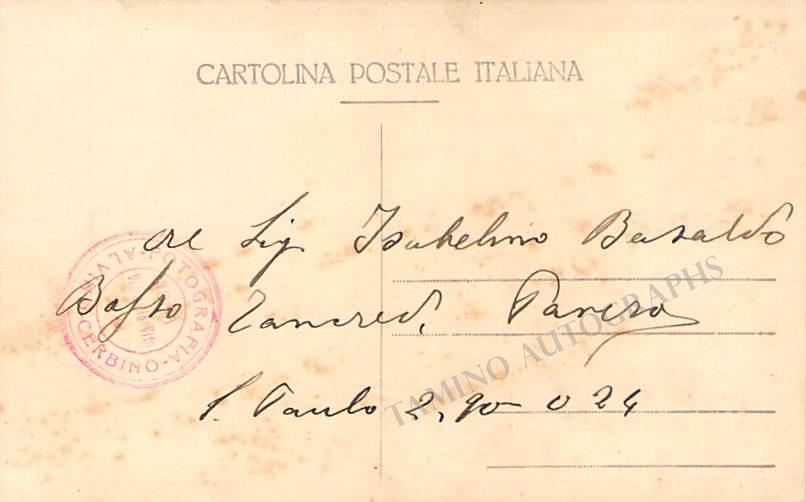 CARTOLINA POSTALE ITALIANA
al Sig. Isabelino Basaldo
Basso Tancredi Pasero
S. Paulo 2, 924
FOTOGRAFIA - ALV CERBINO -
TAMINO AUTOGRAPHS